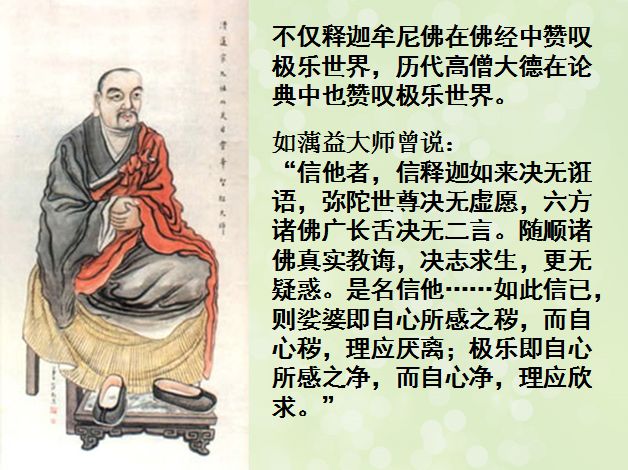 不仅释迦牟尼佛在佛经中赞叹
极乐世界，历代高僧大德在论
典中也赞叹极乐世界。
如蕅益大师曾说：
“信他者，信释迦如来决无诳
语，弥陀世尊决无虚愿，六方
诸佛广长舌决无二言。随顺诸
佛真实教诲，决志求生，更无
疑惑。是名信他……如此信已，
则娑婆即自心所感之秽，而自
心秽，理应厌离；极乐即自心
所感之净，而自心净，理应欣
求。”